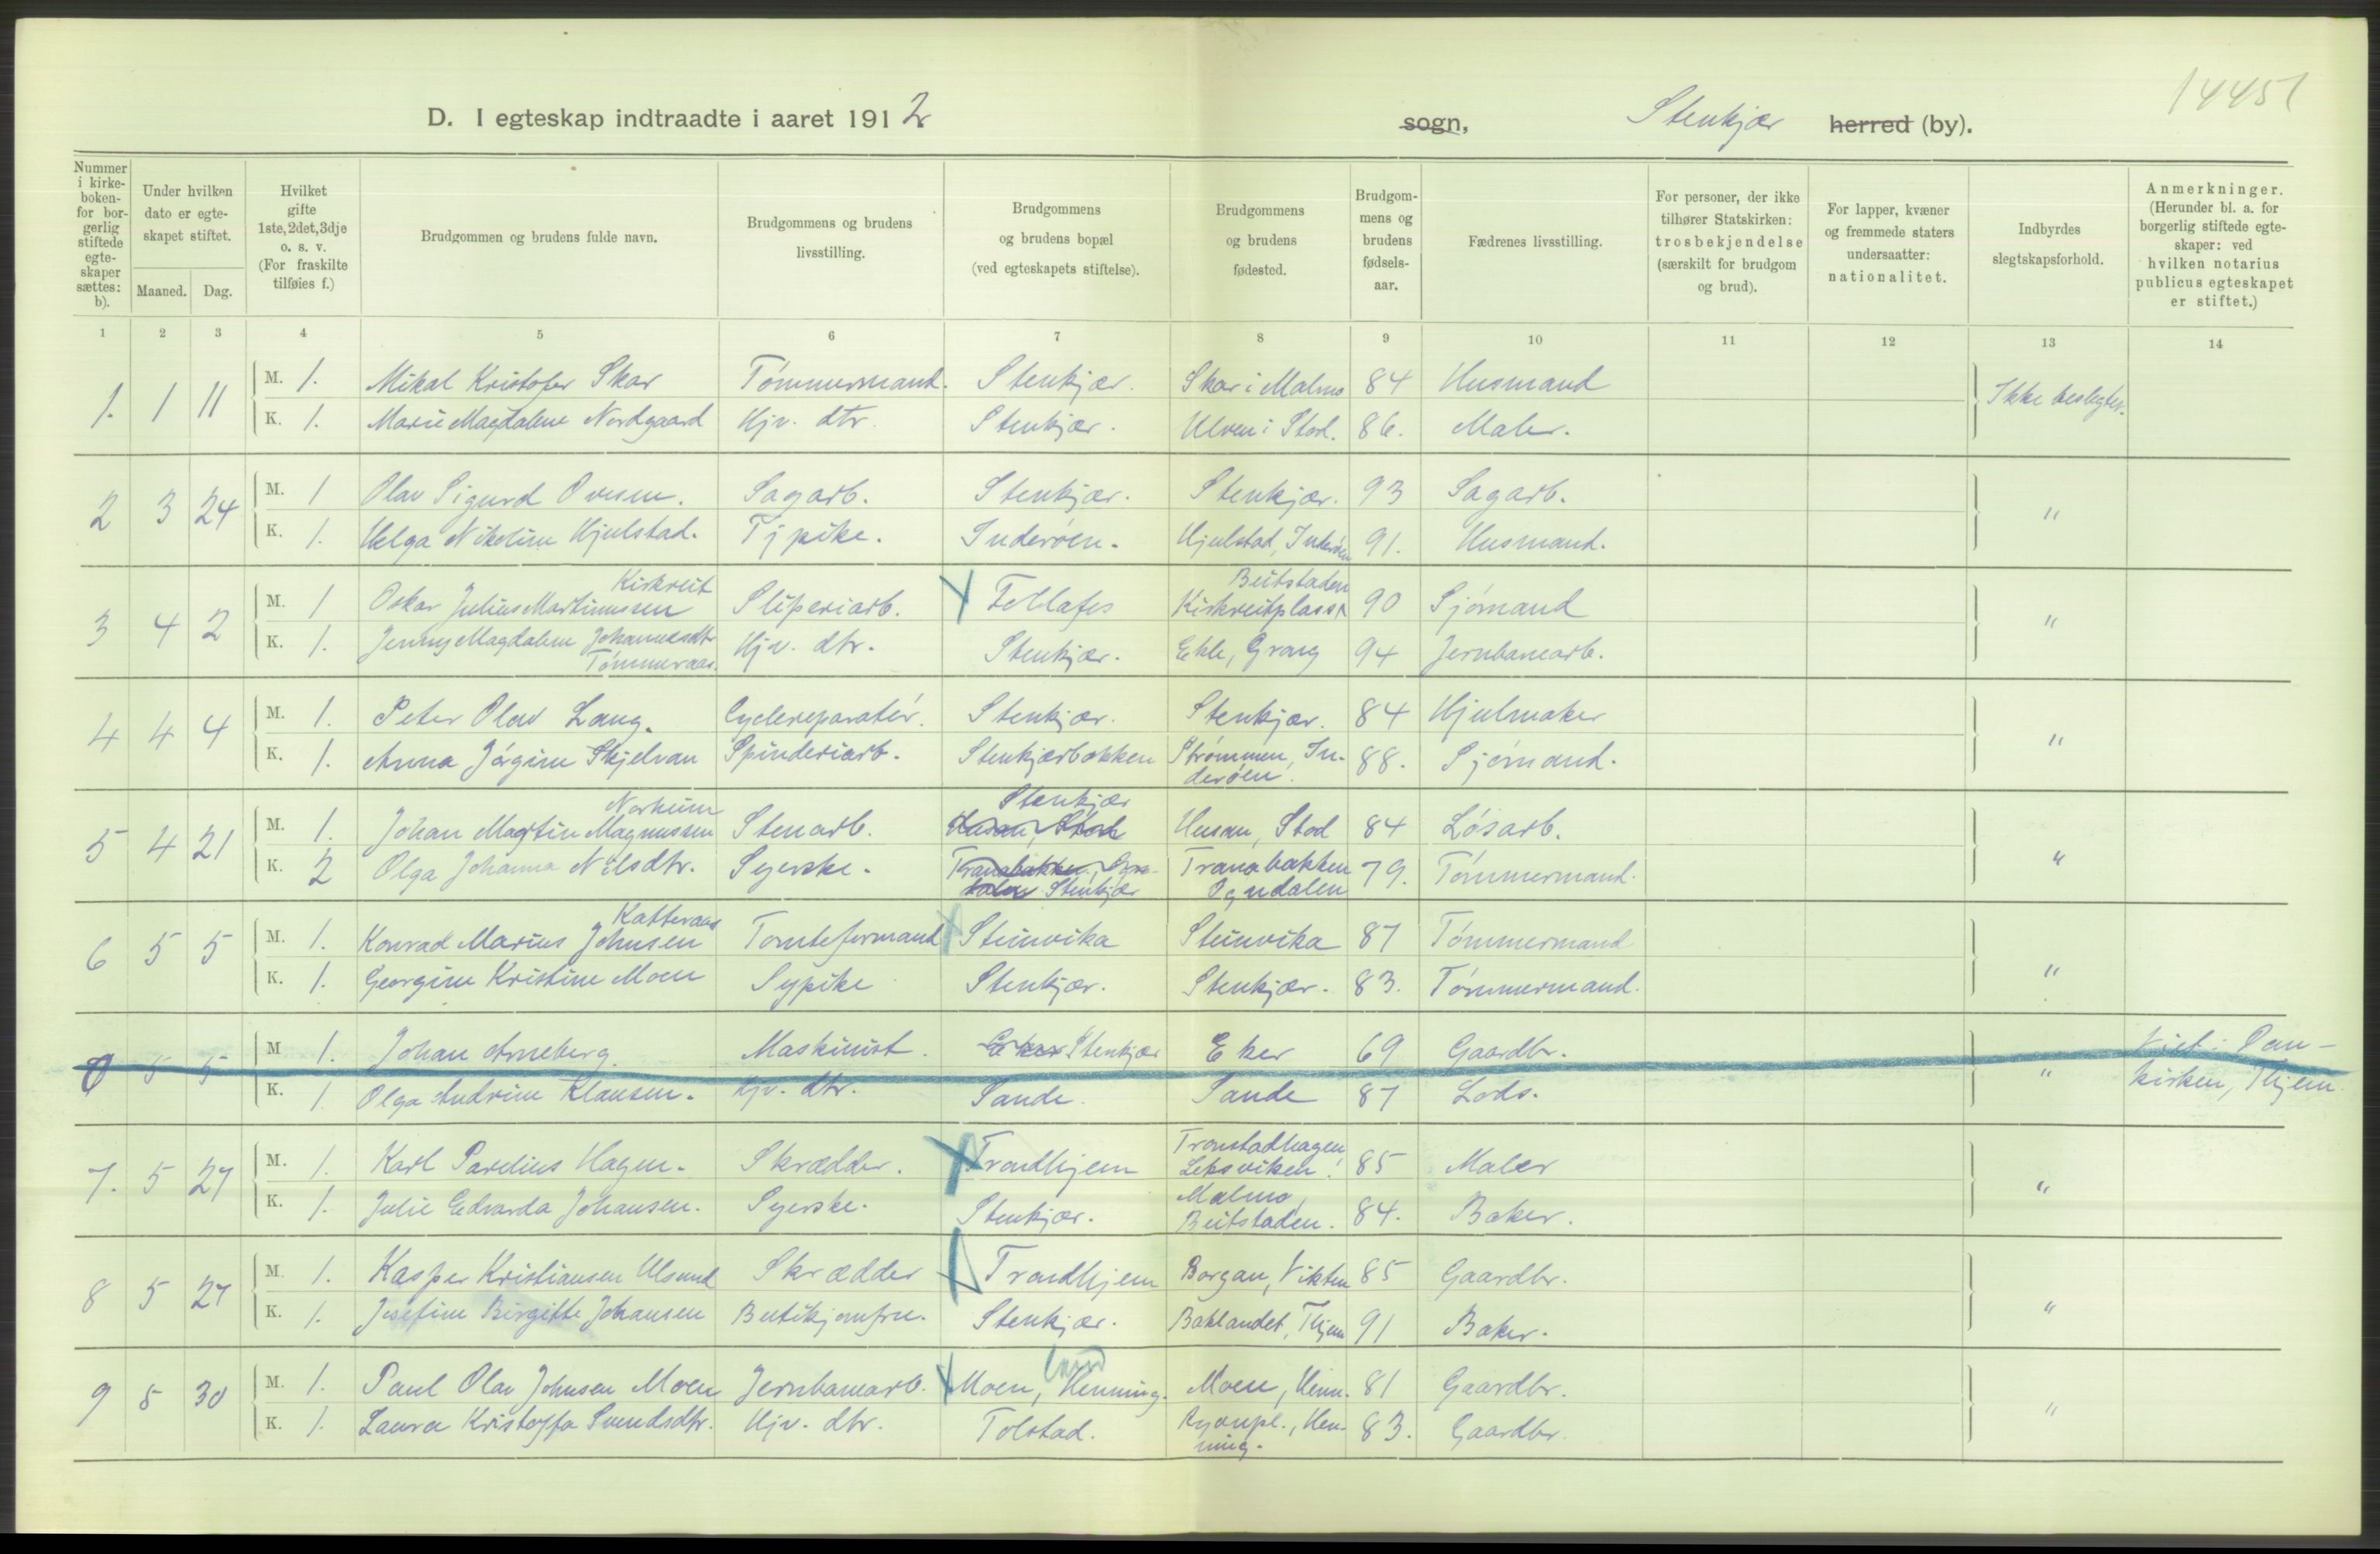 14451
D. I egteskap indtraadte i aaret 1912 sogn, Stenkjær herred (by).
Nummer i kirke-boken- for bor-gerlig stiftede egte-skaper sættes: b).
Under hvilken dato er egte-skapet stiftet.
Maaned. Dag.
Hvilket gifte 1ste, 2det, 3dje o. s. v. (For fraskilte tilføies f.)
Brudgommen og brudens fulde navn.
Brudgommens og brudens livsstilling.
Brudgommens og brudens bopæl (ved egteskapets stiftelse).
Brudgommens og brudens fødested.
Brudgom-mens og brudens fødsels-aar.
Fædrenes livsstilling.
For personer, der ikke tilhører Statskirken: trosbekjendelse (særskilt for brudgom og brud).
For lapper, kvæner og fremmede staters undersaatter: nationalitet.
Indbyrdes slegtskapsforhold.
Anmerkninger. (Herunder bl. a. for borgerlig stiftede egte-skaper: ved hvilken notarius publicus egteskapet er stiftet.)
1 2 3 4 5 6 7 8 9 10 11 12 13 14
1. 1 11 M. 1. Mikal Kristofer Skar Tømmermand. Stenkjær. Skar i Malmo 84 Husmand Ikke beslegtet.
K. 1. Marie Magdalene Nordgaard Hjv. dtr. Stenkjær. Ulven i Stod. 86. Maler.
2 3 24 M. 1 Olav Sigurd Ovesen. Sagarb. Stenkjær. Stenkjær. 93 Sagarb. "
K. 1. Helga Nikoline Hjulstad. Tjpike. Inderøen. Hjulstad, Inderøen 91. Husmand.
3 4 2 M. 1 Oskar Julius Martinussen Kirkreit Sliperiarb. Follafos Kirkreitplass Beitstaden 90 Sjømand "
K. 1. Jenny Magdalene Johannesdtr Tømmeraas. Hjv. dtr. Stenkjær. Ekle, Grong 94 Jernbanearb.
4 4 4 M. 1. Peter Olav Lang. Cyclereparatør. Stenkjær. Stenkjær. 84 Hjulmaker "
K. 1. Anna Jørgine Skjelvan Spinderiarb. Stenkjærbakken Strømmen, In-derøen. 88. Sjømand.
5 4 21 M. 1. Johan Martin Magnussen Norheim Stenarb. Husan, Stod Stenkjær Husan, Stod 84 Løsarb. "
K. 2 Olga Johanna Nilsdtr. Syerske. Tranabakken, Stenkjær Tranabakken Ogndalen 79. Tømmermand.
6 5 5 M. 1. Konrad Marius Johnsen Katteraas Tomteformand Steinvika Steinvika 87 Tømmermand "
K. 1. Georgine Kristine Moen Sypike Stenkjær. Stenkjær. 83. Tømmermand.
0 5 5 M 1. Johan Arneberg. Maskinist. Eker Stenkjær Eker 69 Gaardbr. " Viet i Dom-kirken, Thjem.
K. 1. Olga Andrine Klausen. Hjv. dtr. Sande. Sande 87 Lods.
7. 5 27 M. 1. Karl Parelius Hagen. Skrædder. Trondhjem Tronstadhagen, Leksviken. 85 Maler "
K. 1. Julie Edvarda Johansen. Syerske. Stenkjær. Malmo, Beitstaden. 84. Baker.
8 5 27 M. 1. Kasper Kristiansen Ulsund Skrædder Trondhjem Borgan, Vikten 85 Gaardbr. "
K. 1. Josefine Birgitte Johansen Butikjomfru. Stenkjær. Baklandet, Thjem 91 Baker.
9 5 30 M. 1. Paul Olav Johnsen Moen Jernbanearb. Moen, Henning. land Moen, Henn. 81 Gaardbr. "
K. 1. Laura Kristoffa Svendsdtr. Hjv. dtr. Tolstad. Ryanpl., Hen-ning. 83. Gaardbr.